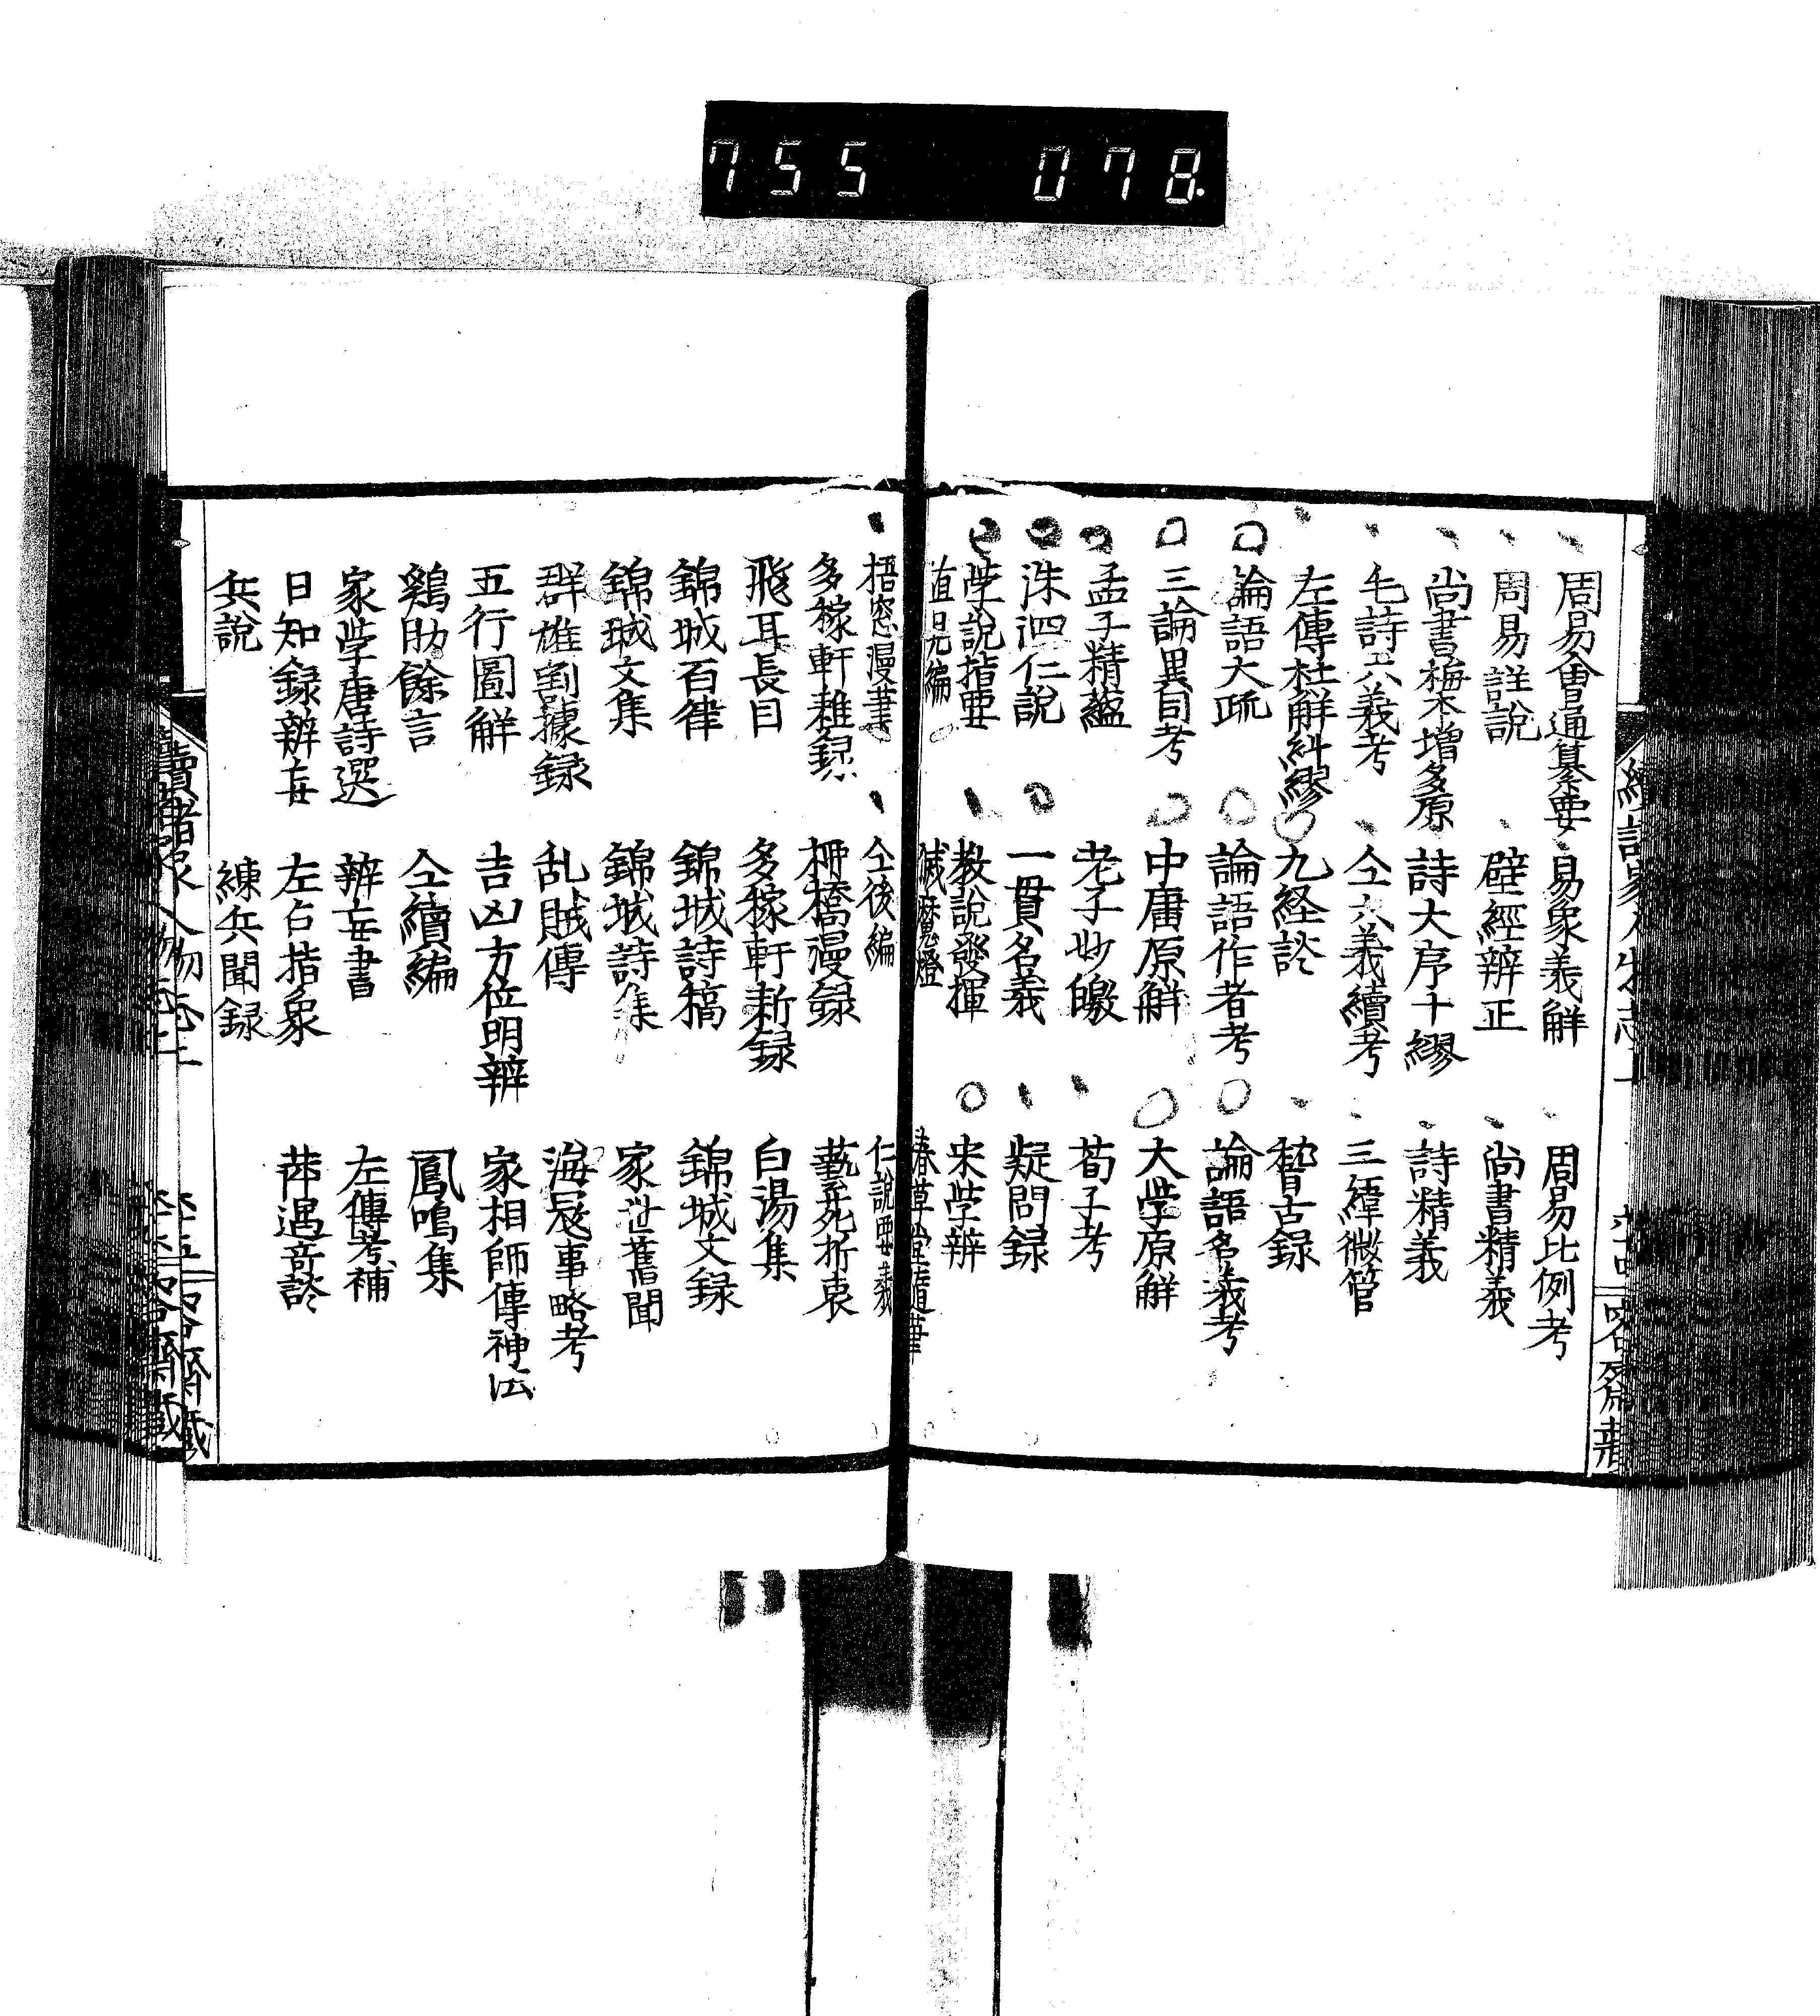 755 078
周易會通纂要 易象義解 周易比例考
周易詳說 壁經辨正 尚書精義
尚書梅本增多原 詩大序十繆 詩精義
毛詩六義考 仝六義續考 三緯微管
左傳杜解糾繆 九経談 稽古録
論語大疏 論語作者考 論語名義考
三論異同考 中庸原解 大学原解
孟子精蘊 老子妙皦 荀子考
洙泗仁說 一貫名義 疑問録
学說指要 教說發揮 宋学辨
直兄編 滅魔燈 春草堂隨筆
梧窓漫筆 仝後編 仁說要義
多稼軒雜録 柳橋漫録 藝苑折衷
飛耳長目 多稼軒新録 白湯集
錦城百律 錦城詩稿 錦城文録
錦城文集 錦城詩集 家世舊聞
群雄割據録 乱賊傳 海寇事略考
五行圖解 吉凶方位明辨 家相師傳神法
鷄肋餘言 仝續編 鳳鳴集
家学唐詩選 辨妄書 左傳考補
日知録辨妄 左占指象 茀遇奇談
兵說 練兵聞録